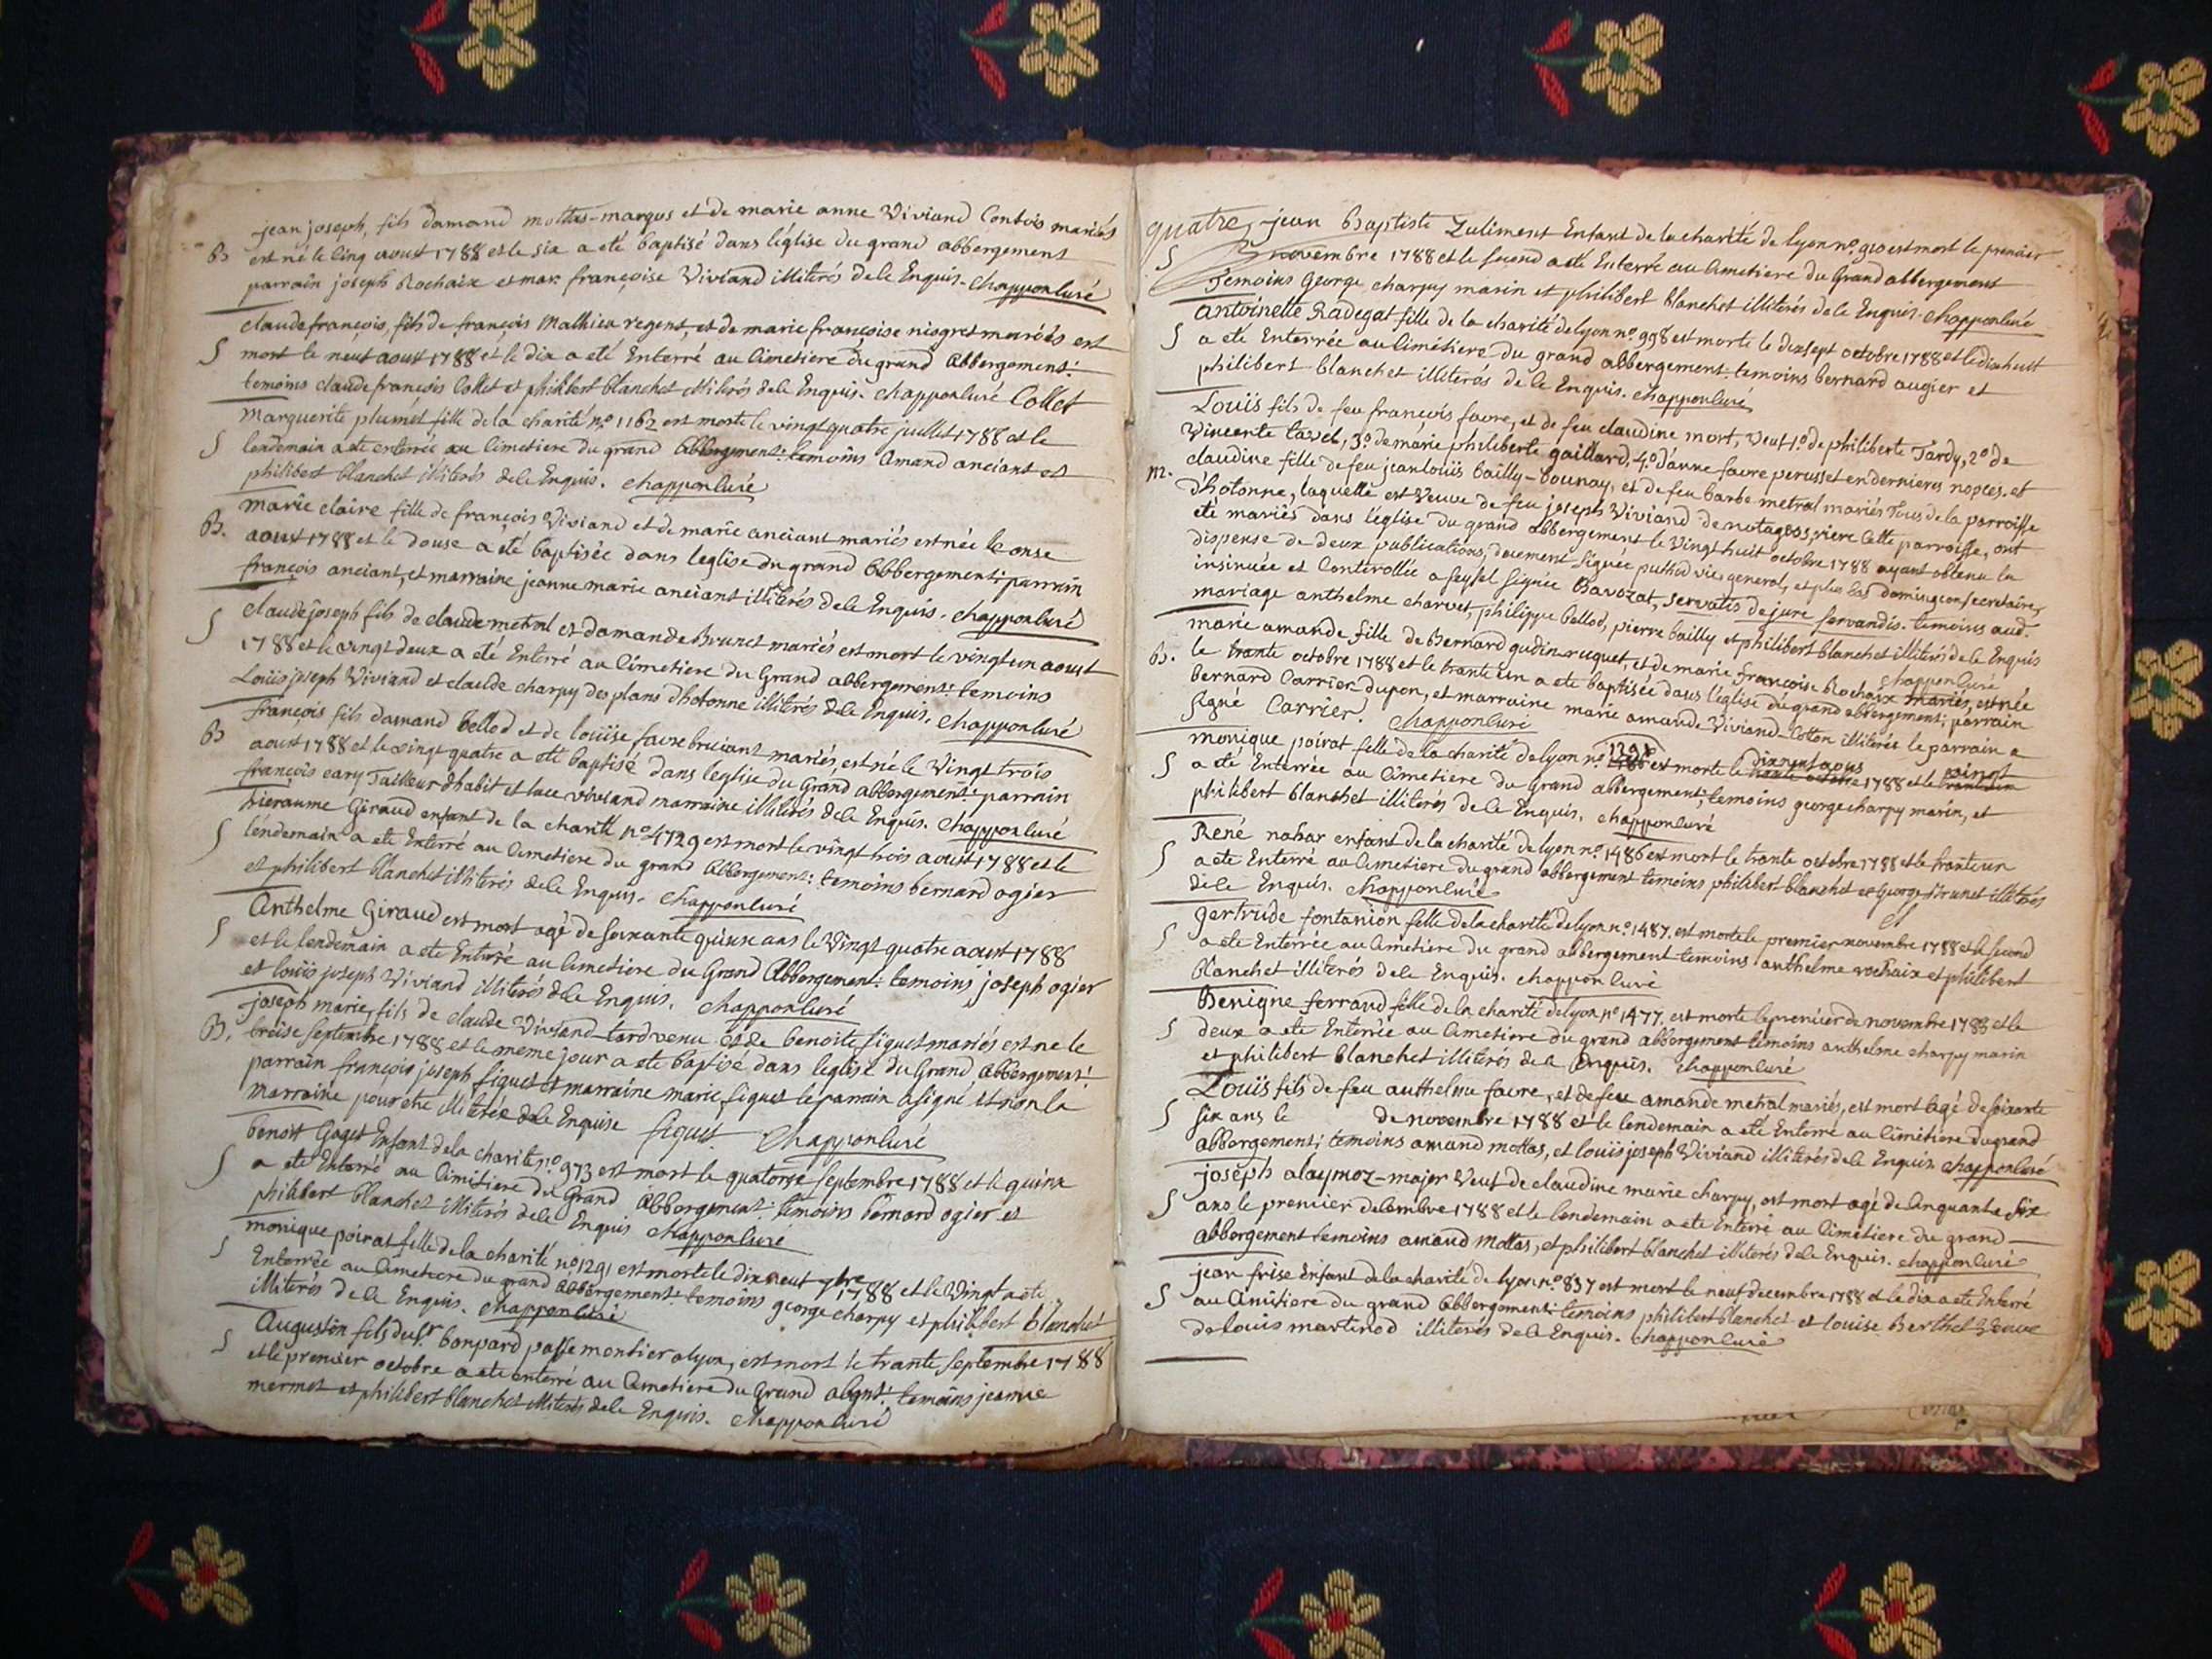 jean joseph, fils damand mottas-margos et de marie anne Viviand Contois mariés
B est né le cinq aoust 1788 et le six a eté baptisé dans l'église du grand abbergement
parrain joseph Rochaix et mar. françoise Viviand illiterés de le Enquis. Chapponluré
claude françois, fils de françois Mathieu regent, et de marie françoise niogret mariés est
S mort le neuf aoust 1788 et le dix a eté Enterré au Cimetiere du grand Abbergement:
temoins claude françois Collet et philibert blanchet illiterés de le Enquis. Chapponluré Collet
Marguerite plumet fille de la charité n.º 1162 est morte le vingt quatre juillet 1788 et le
S lendemain a eté enterrée au Cimetiere du grand Abbergement: temoins Amand anciant et
philibert blanchet illiterés de le Enquis. Chapponluré
marie claire fille de françois Viviand et de marie anciant mariés est née le onse
B. aoust 1788 et le douse a eté baptisée dans leglise du grand Abbergement; parrain
françois anciant, et marraine jeanne marie anciant illiterés de le Enquis. Chapponluré
S claude joseph fils de claude metral et damande Brunet mariés est mort le vingt un aoust
1788 et le vingt deux a eté Enterré au Cimetiere du Grand abbergement: temoins
Loüis joseph Viviand et claude charpy des plans dhotonne illiterés de le Enquis. Chapponluré
françois fils damand bellod et de loüise favre bruciant mariés, est né le Vingt trois
B aoust 1788 et le vingt quatre a eté baptisé dans leglise du Grand abbergement: parrain
françois eary Tailleur dhabit et luce viviand marraine illiterés de le Enquis. Chapponluré
hieraume Giraud enfant de la charité n.º 4729 est mort le vingt trois aoust 1788 et le
S lendemain a eté Enterré au Cimetiere du grand Abbergement: temoins bernard ogier
et philibert blanchet illiterés de le Enquis. Chapponluré
Anthelme Giraud est mort agé de soixante quinse ans le Vingt quatre aoust 1788
S et le lendemain a eté Enterré au Cimetiere du Grand Abbergement: temoins joseph ogier
et loüis joseph Viviand illiterés de le Enquis. Chapponluré
joseph marie, fils de claude Viviand-tardvenu et de benoite figuet mariés est né le
B. treise septembre 1788 et le meme jour a eté baptisé dans leglise du Grand Abbergement:
parrain françois joseph figuet et marraine marie figuet le parrain a signé et non la
marraine pour etre illiterée de le Enquise figuet Chapponluré
benoit Goget Enfant de la charité n.º 973 est mort le quatorze septembre 1788 et le quinse
S a eté Enterré au Cimetiere du Grand Abbergement: temoins bernard ogier et
philibert blanchet illiterés de le Enquis Chapponluré
monique poirat fille de la charité n.º 1291 est morte le dix neuf 7bre 1788 et le Vingt a eté
S Enterrée au Cimetiere du grand Abbergement: temoins george charpy et philibert blanchet
illiterés de le Enquis. Chapponluré
Augustin fils du Sr bonpard passementier a lyon, est mort le trante septembre 1788
S et le premier octobre a eté enterré au Cimetiere du Grand abgnt: temoins jeanne
mermet et philibert blanchet illiterés de le Enquis. Chapponluré
quatre, jean Baptiste Zuliment Enfant de la charité de lyon n.º 910 est mort le premier
S novembre 1788 et le second a eté Enterré au Cimetiere du Grand abbergement
Temoins George charpy marin et philibert blanchet illiterés de le Enquis. Chapponluré
antoinette Radegat fille de la charité de lyon n.º 998 est morte le dixsept octobre 1788 et le dixhuit
S a eté Enterrée au Cimetiere du grand abbergement. temoins bernard augier et
philibert blanchet illiterés de le Enquis. Chapponluré
Loüis fils de feu françois favre, et de feu claudine mort, Veuf 1.º de philiberte Tardy, 2º de
Vincente tavel, 3.º de marie philiberte gaillard, 4.º d'anne favre perusset en dernieres nopces. et
M. claudine fille de feu jean loüis bailly-bounay, et de feu barbe metral mariés Tous de la parroisse
d'hotonne, laquelle est Veuve de feu joseph Viviand de notages, riere Cette parroisse, ont
eté mariés dans l'église du grand abbergement le Vingt huit octobre 1788 ayant obtenu la
dispense de deux publications, duement signée puthod vic. general, et plus bas domingeon secretaire,
insinuée et Controllée a seysel signée Bavozat, servatis de jure servandis. temoins aud.
mariage anthelme charvet, philippe bellod, pierre bailly et philibert blanchet illiterés de le Enquis
Chapponluré
marie amande fille de Bernard gudin-ruquet, et de marie françoise Rochaix mariés, est née
B. le trante octobre 1788 et le trante un a eté baptisée dans l'église du grand abbergement; parrain
Bernard Carrier dupon, et marraine marie amande Viviand-Cotton illiterée le parrain a
signé Carrier. Chapponluré
monique poirat fille de la charité de lyon n.º 1291 est morte le 1788 et le
S a eté Enterrée au Cimetiere du Grand abbergement; temoins george charpy marin, et
philibert blanchet illiterés de le Enquis. Chapponluré
René nahar enfant de la charité de lyon n.º 1486 est mort le trante octobre 1788 et le trante un
S a eté Enterré au Cimetiere du grand abbergement temoins philibert blanchet et George Brunet illiterés
de le Enquis. Chapponluré
gertrude fontanion fille de la charité de lyon n.º 1487. est morte le premier novembre 1788 et le second
S a eté Enterrée au Cimetiere du grand abbergement temoins anthelme rochaix et philibert
blanchet illiterés de le Enquis. Chapponluré
Benigne ferrand fille de la charité de lyon n.º 1477. est morte le premier de novembre 1788 et le
S deux a eté Enterrée au Cimetiere du grand abbergement temoins anthelme charpy marin
et philibert blanchet illiterés de le Enquis. Chapponluré
Loüis fils de feu anthelme favre, et de feu amande metral mariés, est mort agé de soixante
S six ans le de novembre 1788 et le lendemain a eté Enterré au Cimetiere du grand
abbergement; temoins amand mottas, et louis joseph Viviand illiterés de le Enquis Chapponluré
joseph alaymoz-major Veuf de claudine marie charpy, est mort agé de Cinquante six
S ans le premier decembre 1788 et le lendemain a eté Enterré au Cimetiere du grand
abbergement temoins amand Mottas, et philibert blanchet illiterés de le Enquis. Chapponluré
jean frise Enfant de la charité de lyon n.º 837 est mort le neuf decembre 1788 et le dix a eté Enterré
S au Cimetiere du grand Abbergement: temoins philibert blanchet et louise Berthet Veuve
de louis martinod illiterés de le Enquis. Chapponluré